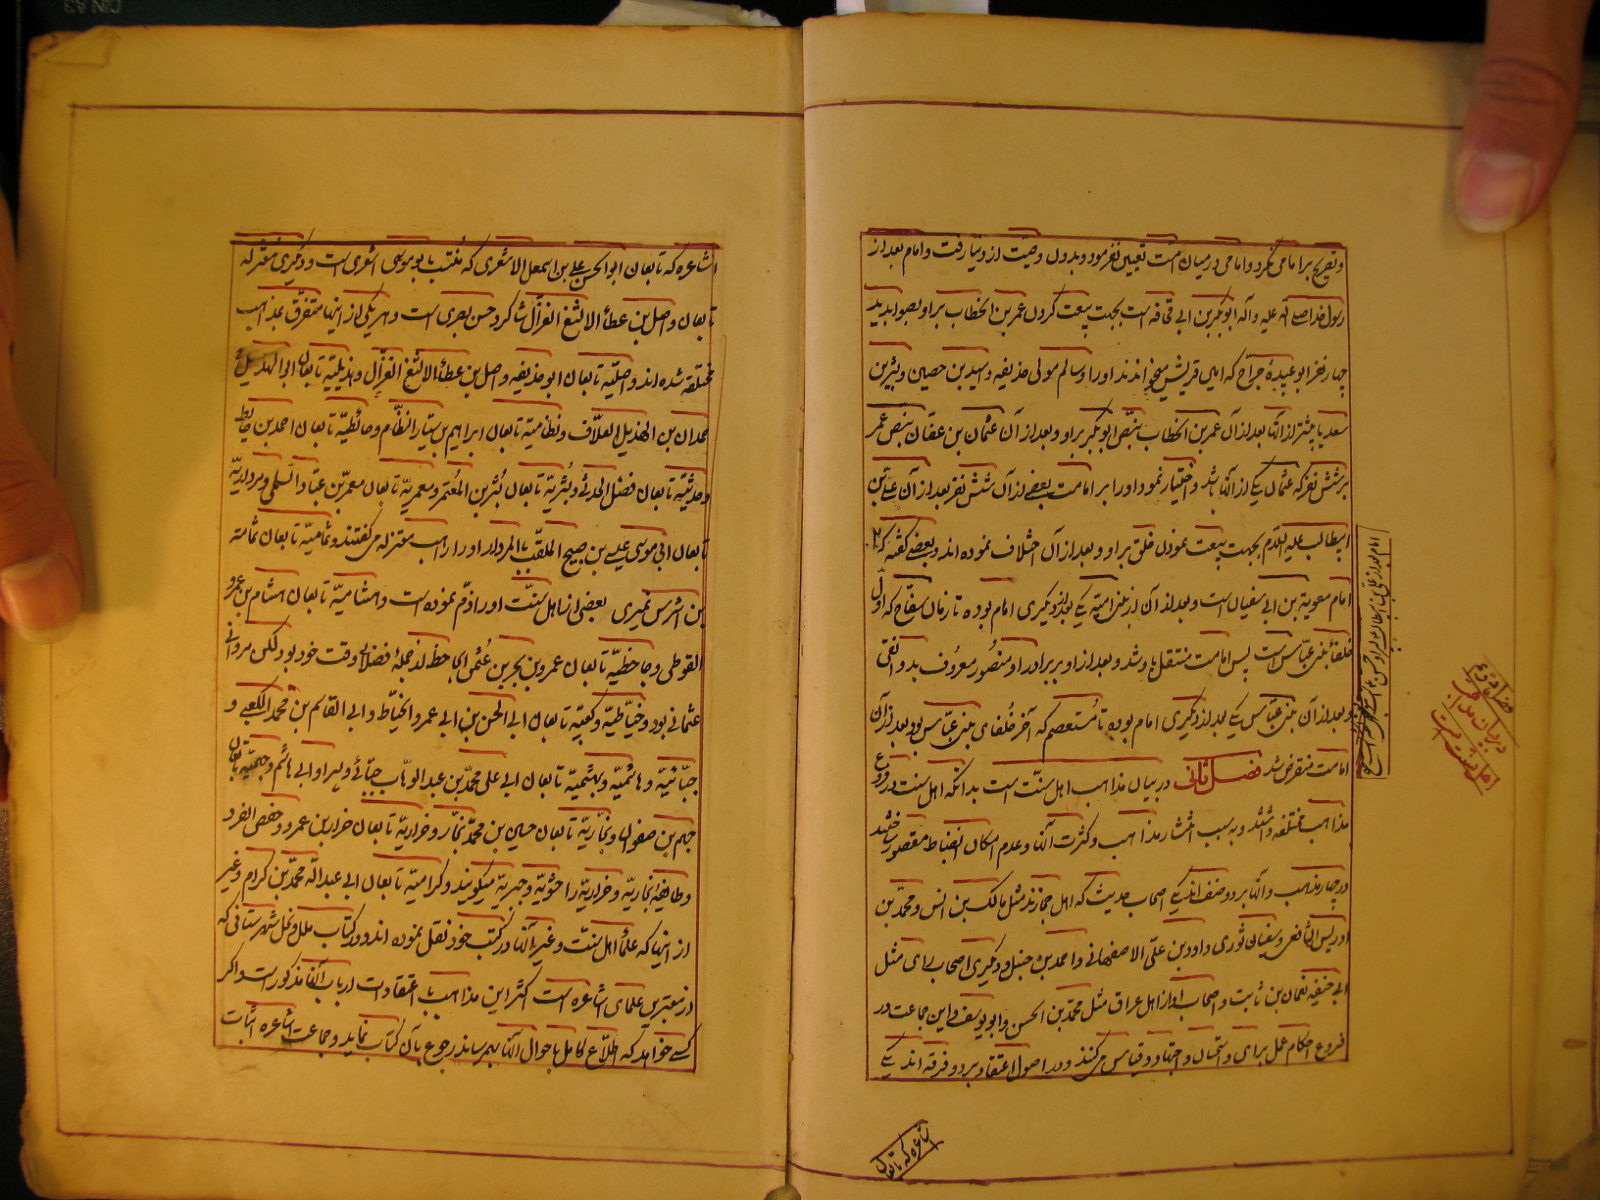 و تصریح بر امامی نکرد و امامی در میان امت تعیین نفرمود و بدون وصیت از دنیا رفت و امام بعد از
رسول خدا صلی الله علیه و آله ابوبکر بن ابی قحافه است بجهت بیعت کردن عمر بن الخطاب بر او بصوابدید
چهار نفر ابو عبیدهٔ جراح که امین قریش میخواندند او را و سالم مولی حذیفه و اسید بن حصین و بشر بن
سعد یا بیشتر از آنها بعد از آن عمر بن الخطاب بنص ابوبکر بر او و بعد از آن عثمان بن عفان بنص عمر
بر شش نفر که عثمان یکی از آنها باشد و اختیار نمود او را بر امامت بعضی از آن شش نفر بعد از آن علی بن
ابیطالب علیه السلام بجهت بیعت نمودن خلق بر او و بعد از آن اختلاف نموده اند و بعضی گفته که
امام معویة بن ابی سفیان است و بعد از آن از بنی امیه یکی بعد از دیگری امام بوده تا زمان سفاح که اول
خلفا بنی عباس است پس امامت منتقل باو شد و بعد از او برادر او منصور معروف بدوانقی
و بعد از آن بنی عباس یکی بعد از دیگری امام بوده تا مستعصم که آخر خلفای بنی عباس بود بعد از آن
امامت منقرض شد فصل ثانی در بیان مذاهب اهل سنت است بدانکه اهل سنت در فروع
مذاهب مختلفه داشتند و به سبب انتشار مذاهب و کثرت آنها و عدم امکان انضباط مقصور ساختند
در چهار مذهب و آنها بر دو صنف اند یکی اصحاب حدیث که اهل حجازند مثل مالک بن انس و محمد بن
ادریس الشافعی و سفیان ثوری و داود بن علی الاصفهانی و احمد بن حنبل و دیگری اصحاب رای مثل
ابی حنیفه نعمان بن ثابت و اصحاب او از اهل عراق مثل محمد بن الحسن و ابو یوسف و این جماعت در
فروع احکام عمل برای و استحسان و اجتهاد و قیاس میکنند و در اصول اعتقاد بر دو فرقه اند یکی
امام بعد از علی بن ابیطالب
فصل ثانی
در بیان مذاهب
اهل سنت است
اشاعره که تابعان
اشاعره که تابعان ابو الحسن علی بن اسمعل الاشعری که منتسب بابو موسی اشعری است و دیگری معتزله
تابعان واصل بن عطاء الالثغ الغزال شاکرد حسن بصری است و هر یکی از اینها متفرق بمذاهب
مختلفه شده اند واصلیه تابعان ابو حذیفه واصل بن عطاء الالثغ الغزال و هذیلیه تابعان ابو الهذیل
حمدان بن الهذیل العلاف و نظامیه تابعان ابراهیم بن سیار النظام و حائطیه تابعان احمد بن حایط
و حدثیه تابعان فضل الحدثی و بشریه تابعان بشر بن المعتمر و معمریه تابعان معمر بن عباد السلمی و مرداریه
تابعان ابی موسی عیسی بن صبیح الملقب بالمردار او را راهب معتزله میگفتند و ثمامیه تابعان ثمامه
بن اشرس نمیری بعضی از اهل سنت او را ذم نموده است و هشامیه تابعان هشام بن عمرو
القوطی و جاحظیه تابعان عمرو بن بحر بن عثمن الجاحظ از جملهٔ فضلای وقت خود بود لکن مروانی
عثمانی بود و خیاطیه و کعبیه تابعان ابی الحسن بن ابی عمرو الخیاط و ابی القاسم بن محمد الکعبی و
جبائیه و هاشمیه و بهشمیه تابعان ابی علی محمد بن عبد الوهاب جبائی و پسر او ابی هاشم و جهمیه تابعان
جهم بن صفوان و نجاریه تابعان حسین بن محمد نجار و ضراریه تابعان ضرار بن عمرو و حفص الفرد
و طایفهٔ نجاریه و ضراریه را حشویه و جبریه میگویند و کرامیه تابعان ابی عبد الله محمد بن کرام و غیر
از اینها که علماء اهل سنت و غیر آنها در کتب خود نقل نموده اند و در کتاب ملل و نحل شهرستانی که
از معتبرین علمای اشاعره است اکثر این مذاهب با اعتقادات ارباب آنها مذکور است و اکر
کسی خواهد که اطلاع کامل باحوال آنها بهم رساند رجوع بآن کتاب نماید و جماعت اشاعره اثبات